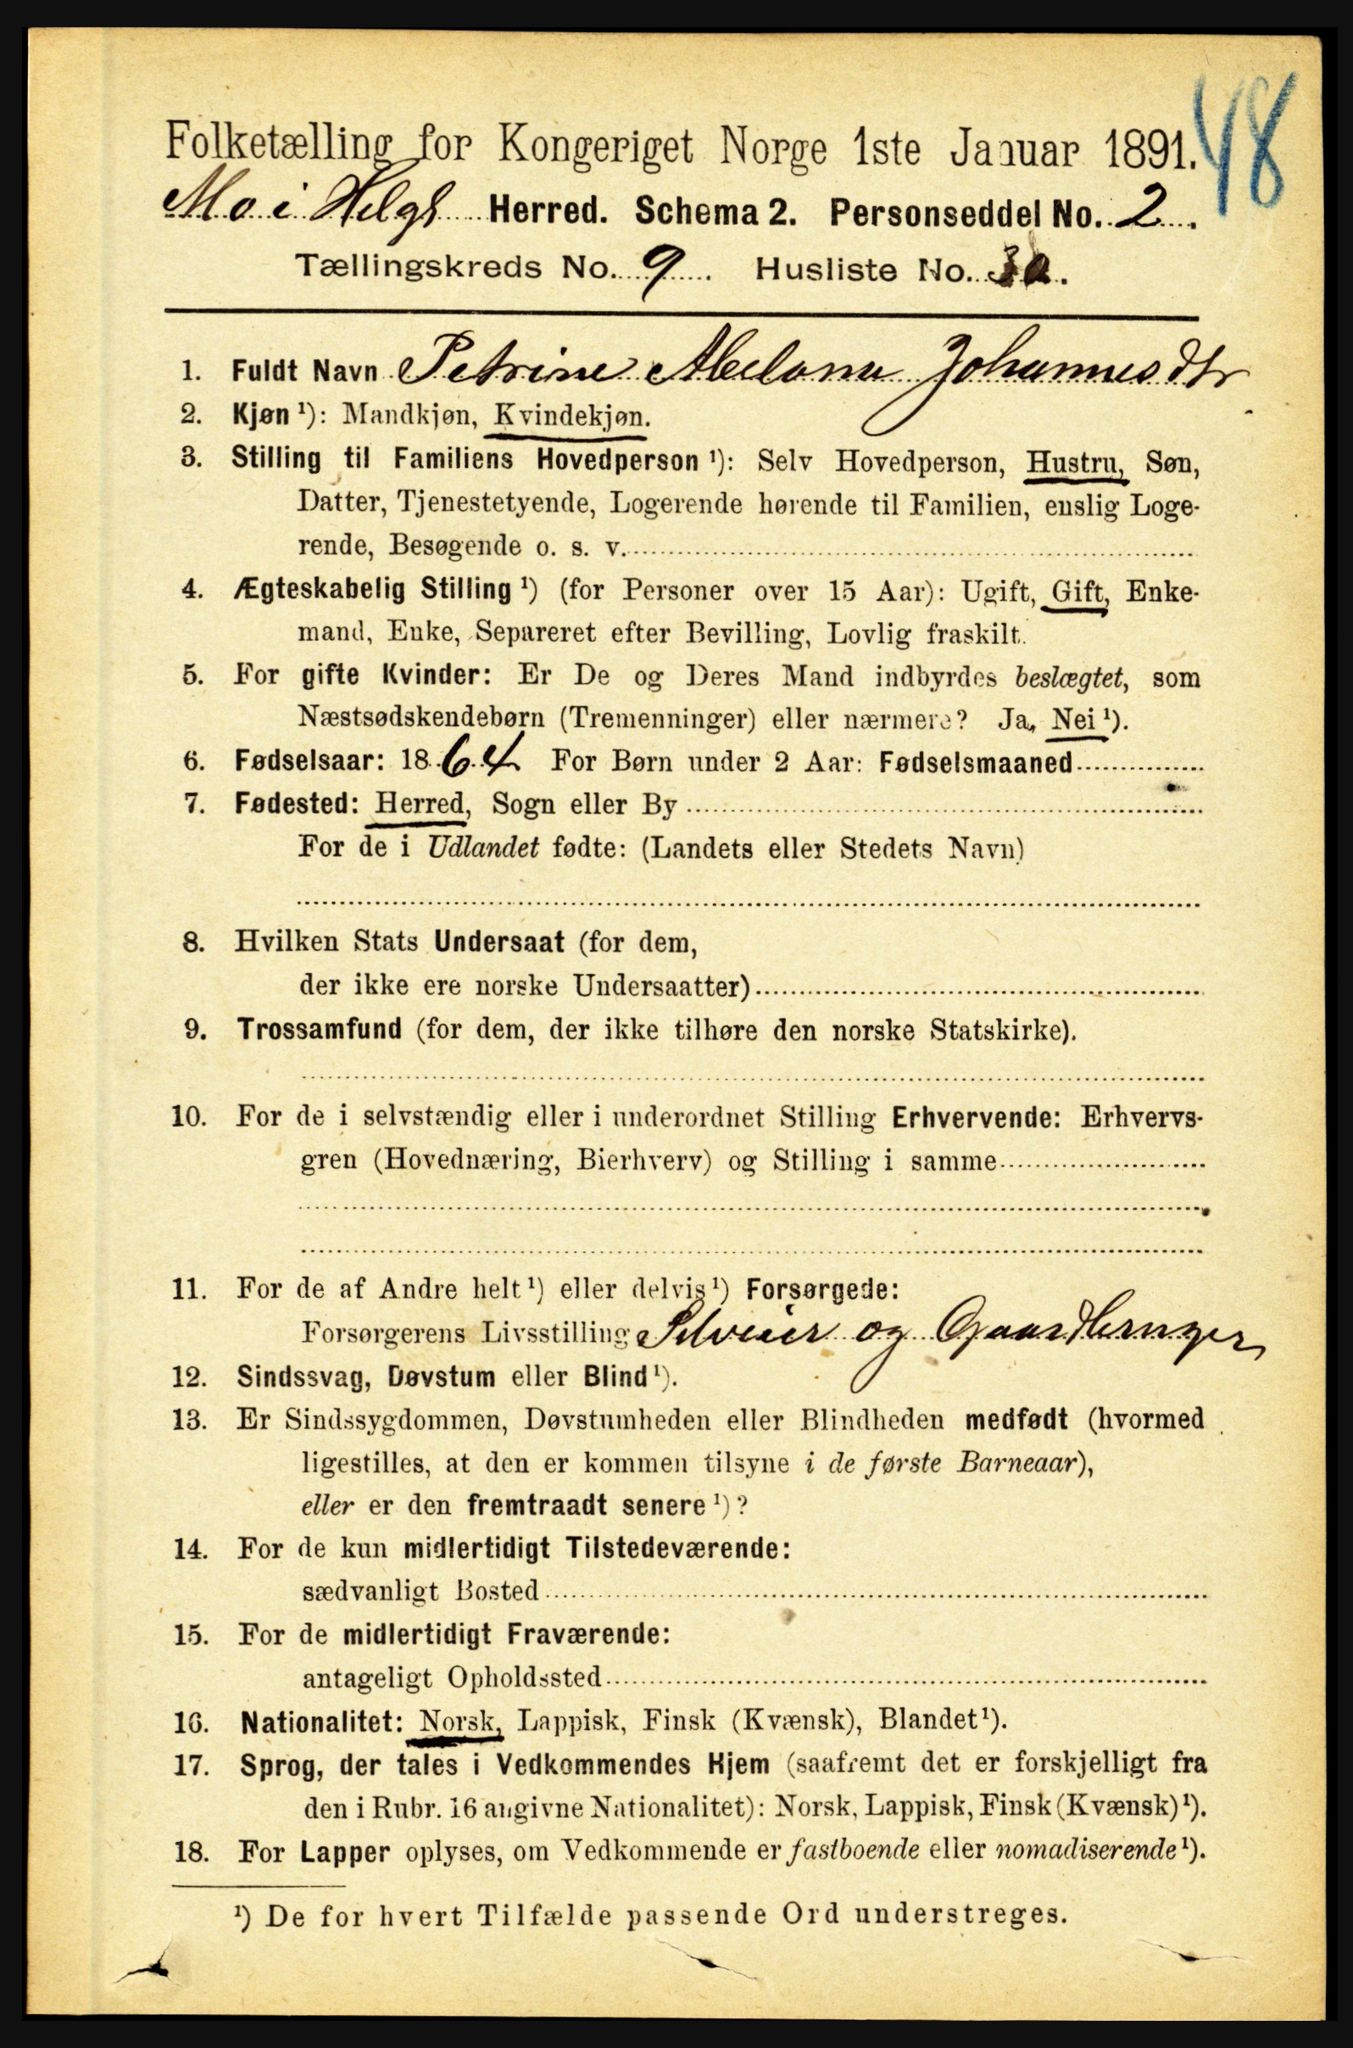 48
Folketælling for Kongeriget Norge 1ste Januar 1891.
Mo i Helgl Herred. Schema 2. Personseddel No. 2.
Tællingskreds No. 9. Husliste No.
1. Fuldt Navn Petrine Johannesdtr
2. Kjøn ¹): Mandkjøn, Kvindekjøn.
3. Stilling til Familiens Hovedperson ¹): Selv Hovedperson, Hustru, Søn,
Datter, Tjenestetyende, Logerende hørende til Familien, enslig Loge-
rende, Besøgende o. s. v.
4. Ægteskabelig Stilling ¹) (for Personer over 15 Aar): Ugift, Gift, Enke-
mand, Enke, Separeret efter Bevilling, Lovlig fraskilt.
5. For gifte Kvinder: Er De og Deres Mand indbyrdes beslægtet, som
Næstsødskendebørn (Tremenninger) eller nærmere? Ja, Nei ¹).
6. Fødselsaar: 1864 For Børn under 2 Aar: Fødselsmaaned
7. Fødested: Herred, Sogn eller By
For de i Udlandet fødte: (Landets eller Stedets Navn)
8. Hvilken Stats Undersaat (for dem,
der ikke ere norske Undersaatter)
9. Trossamfund (for dem, der ikke tilhøre den norske Statskirke).
10. For de i selvstændig eller i underordnet Stilling Erhvervende: Erhvervs-
gren (Hovednæring, Bierhverv) og Stilling i samme
11. For de af Andre helt ¹) eller delvis ¹) Forsørgede:
Forsørgerens Livsstilling Selveier og Gaardbruger
12. Sindssvag, Døvstum eller Blind ¹).
13. Er Sindssygdommen, Døvstumheden eller Blindheden medfødt (hvormed
ligestilles, at den er kommen tilsyne i de første Barneaar),
eller er den fremtraadt senere ¹)?
14. For de kun midlertidigt Tilstedeværende:
sædvanligt Bosted
15. For de midlertidigt Fraværende:
antageligt Opholdssted
16. Nationalitet: Norsk, Lappisk, Finsk (Kvænsk), Blandet ¹).
17. Sprog, der tales i Vedkommendes Hjem (saafremt det er forskjelligt fra
den i Rubr. 16 angivne Nationalitet): Norsk, Lappisk, Finsk (Kvænsk) ¹).
18. For Lapper oplyses, om Vedkommende er fastboende eller nomadiserende ¹).
¹) De for hvert Tilfælde passende Ord understreges.